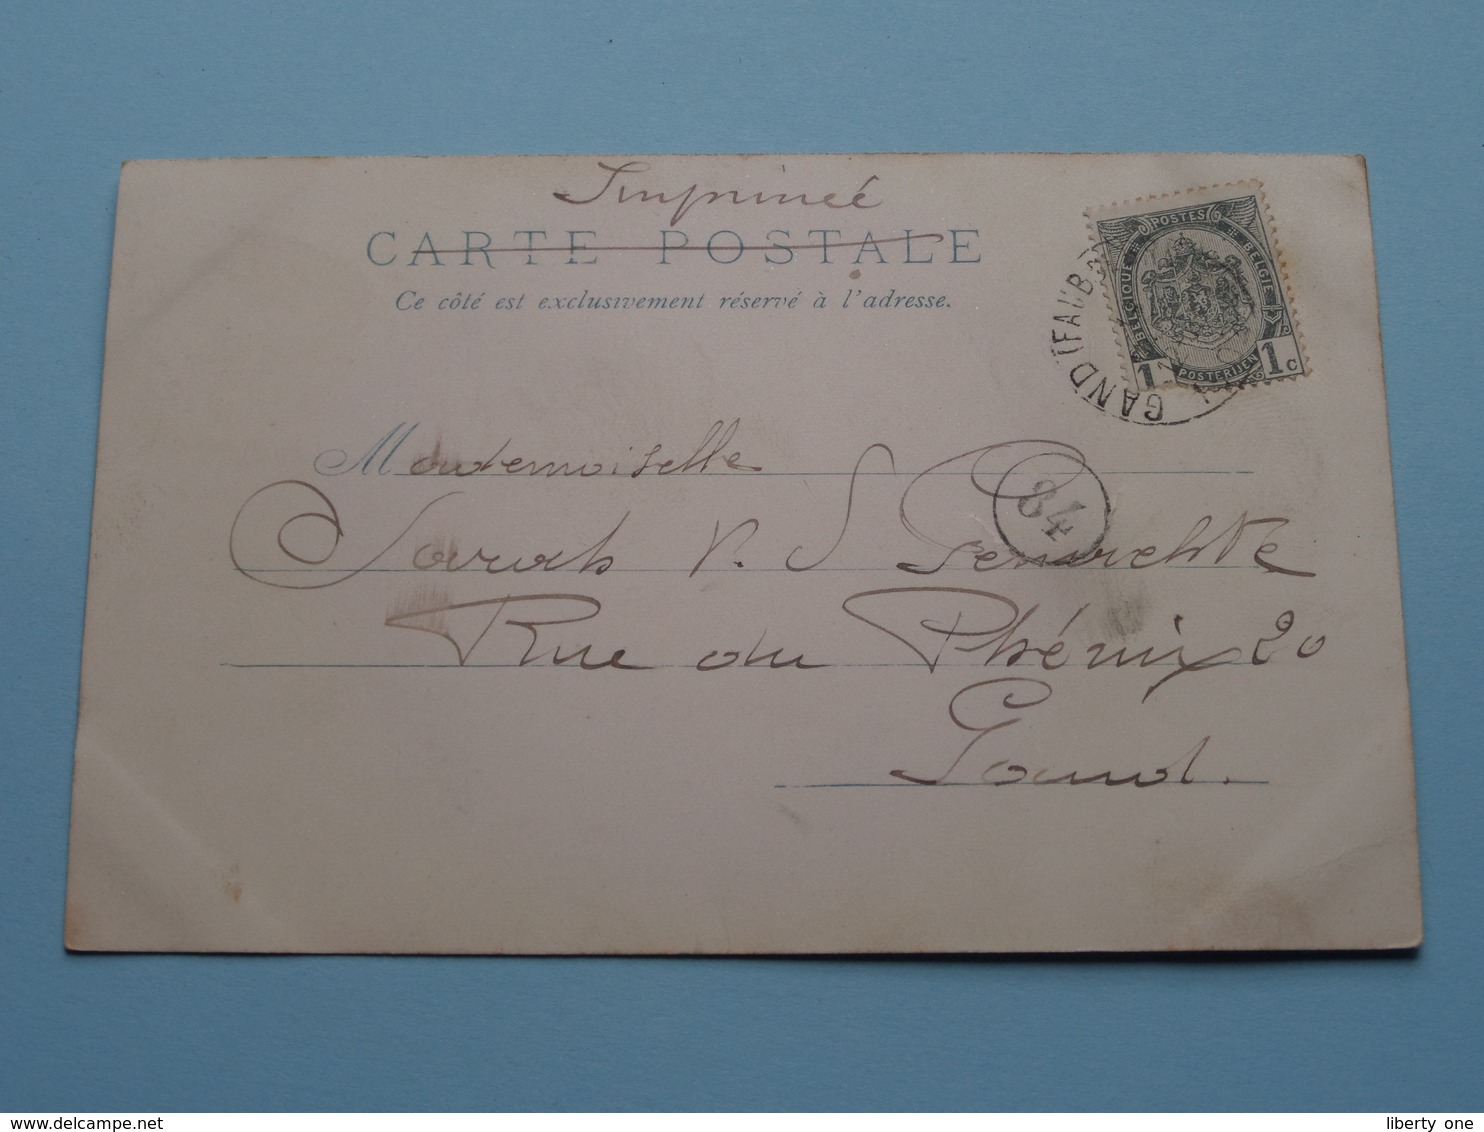 Imprimée
CARTE POSTALE
Ce côté est exclusivement réservé à l'adresse.
POSTES
BELGIQUE
BELGIE
1 POSTERIJEN 1c
GAND (FAUB
Mademoiselle
84
Sarah v. S
Rue du Phénix 20
Gand.
www.delcampe.net
liberty one